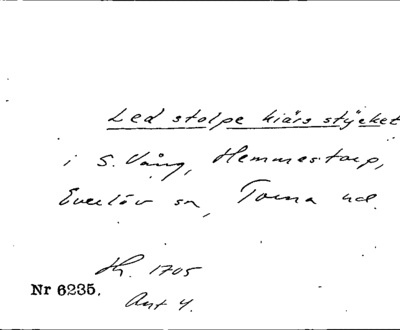 Led stolpe kiärs stÿcket
i S. Vång, Hemmestorp,
Everlöv sn, Torna hd.
Ht. 1705
Nr 6235.
Akt 4.